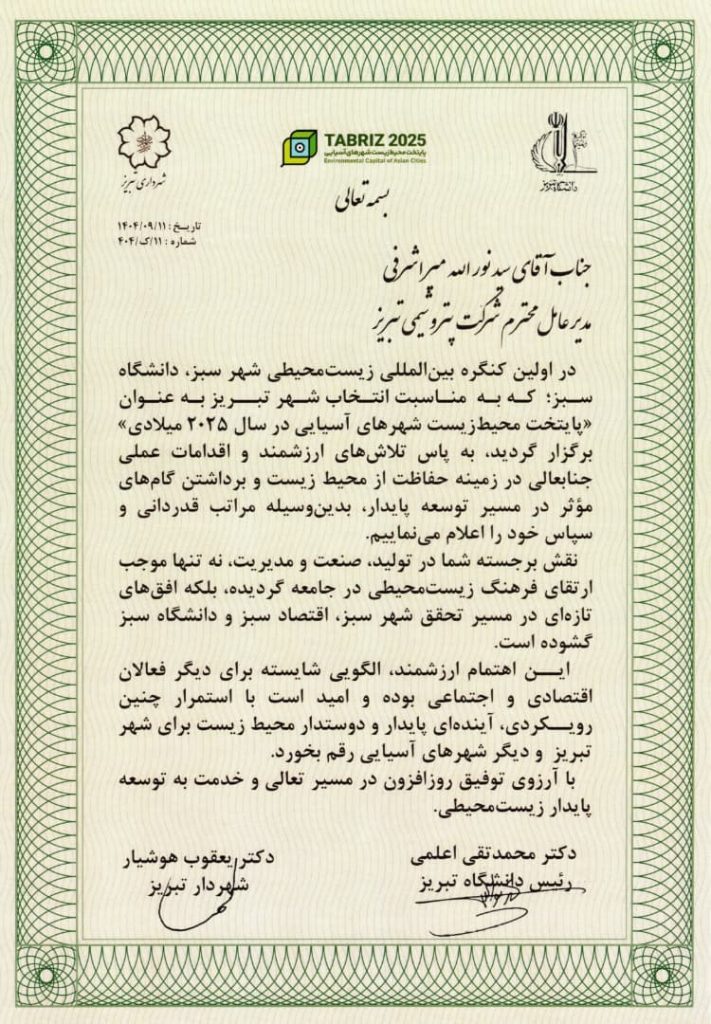 شهرداری تبریز
TABRIZ 2025
پایتخت محیط‌زیست شهرهای آسیایی
Environmental Capital of Asian Cities
دانشگاه تبریز
بسمه تعالی
تاریخ: ۱۴۰۴/۰۹/۱۱
شماره: ۱۱/ک/۴۰۴
جناب آقای سید نور الله میراشرفی
مدیر عامل محترم شرکت پتروشیمی تبریز
در اولین کنگره بین‌المللی زیست‌محیطی شهر سبز، دانشگاه
سبز؛ که به مناسبت انتخاب شهر تبریز به عنوان
«پایتخت محیط‌زیست شهرهای آسیایی در سال ۲۰۲۵ میلادی»
برگزار گردید، به پاس تلاش‌های ارزشمند و اقدامات عملی
جنابعالی در زمینه حفاظت از محیط زیست و برداشتن گام‌های
مؤثر در مسیر توسعه پایدار، بدین‌وسیله مراتب قدردانی و
سپاس خود را اعلام می‌نماییم.
نقش برجسته شما در تولید، صنعت و مدیریت، نه تنها موجب
ارتقای فرهنگ زیست‌محیطی در جامعه گردیده، بلکه افق‌های
تازه‌ای در مسیر تحقق شهر سبز، اقتصاد سبز و دانشگاه سبز
گشوده است.
ایـــن اهتمام ارزشمند، الگویی شایسته برای دیگر فعالان
اقتصادی و اجتماعی بوده و امید است با استمرار چنین
رویـکردی، آینده‌ای پایدار و دوستدار محیط زیست برای شهر
تبریز و دیگر شهرهای آسیایی رقم بخورد.
با آرزوی توفیق روزافزون در مسیر تعالی و خدمت به توسعه
پایدار زیست‌محیطی.
دکتر محمدتقی اعلمی
رئیس دانشگاه تبریز
دکتر یعقوب هوشیار
شهردار تبریز